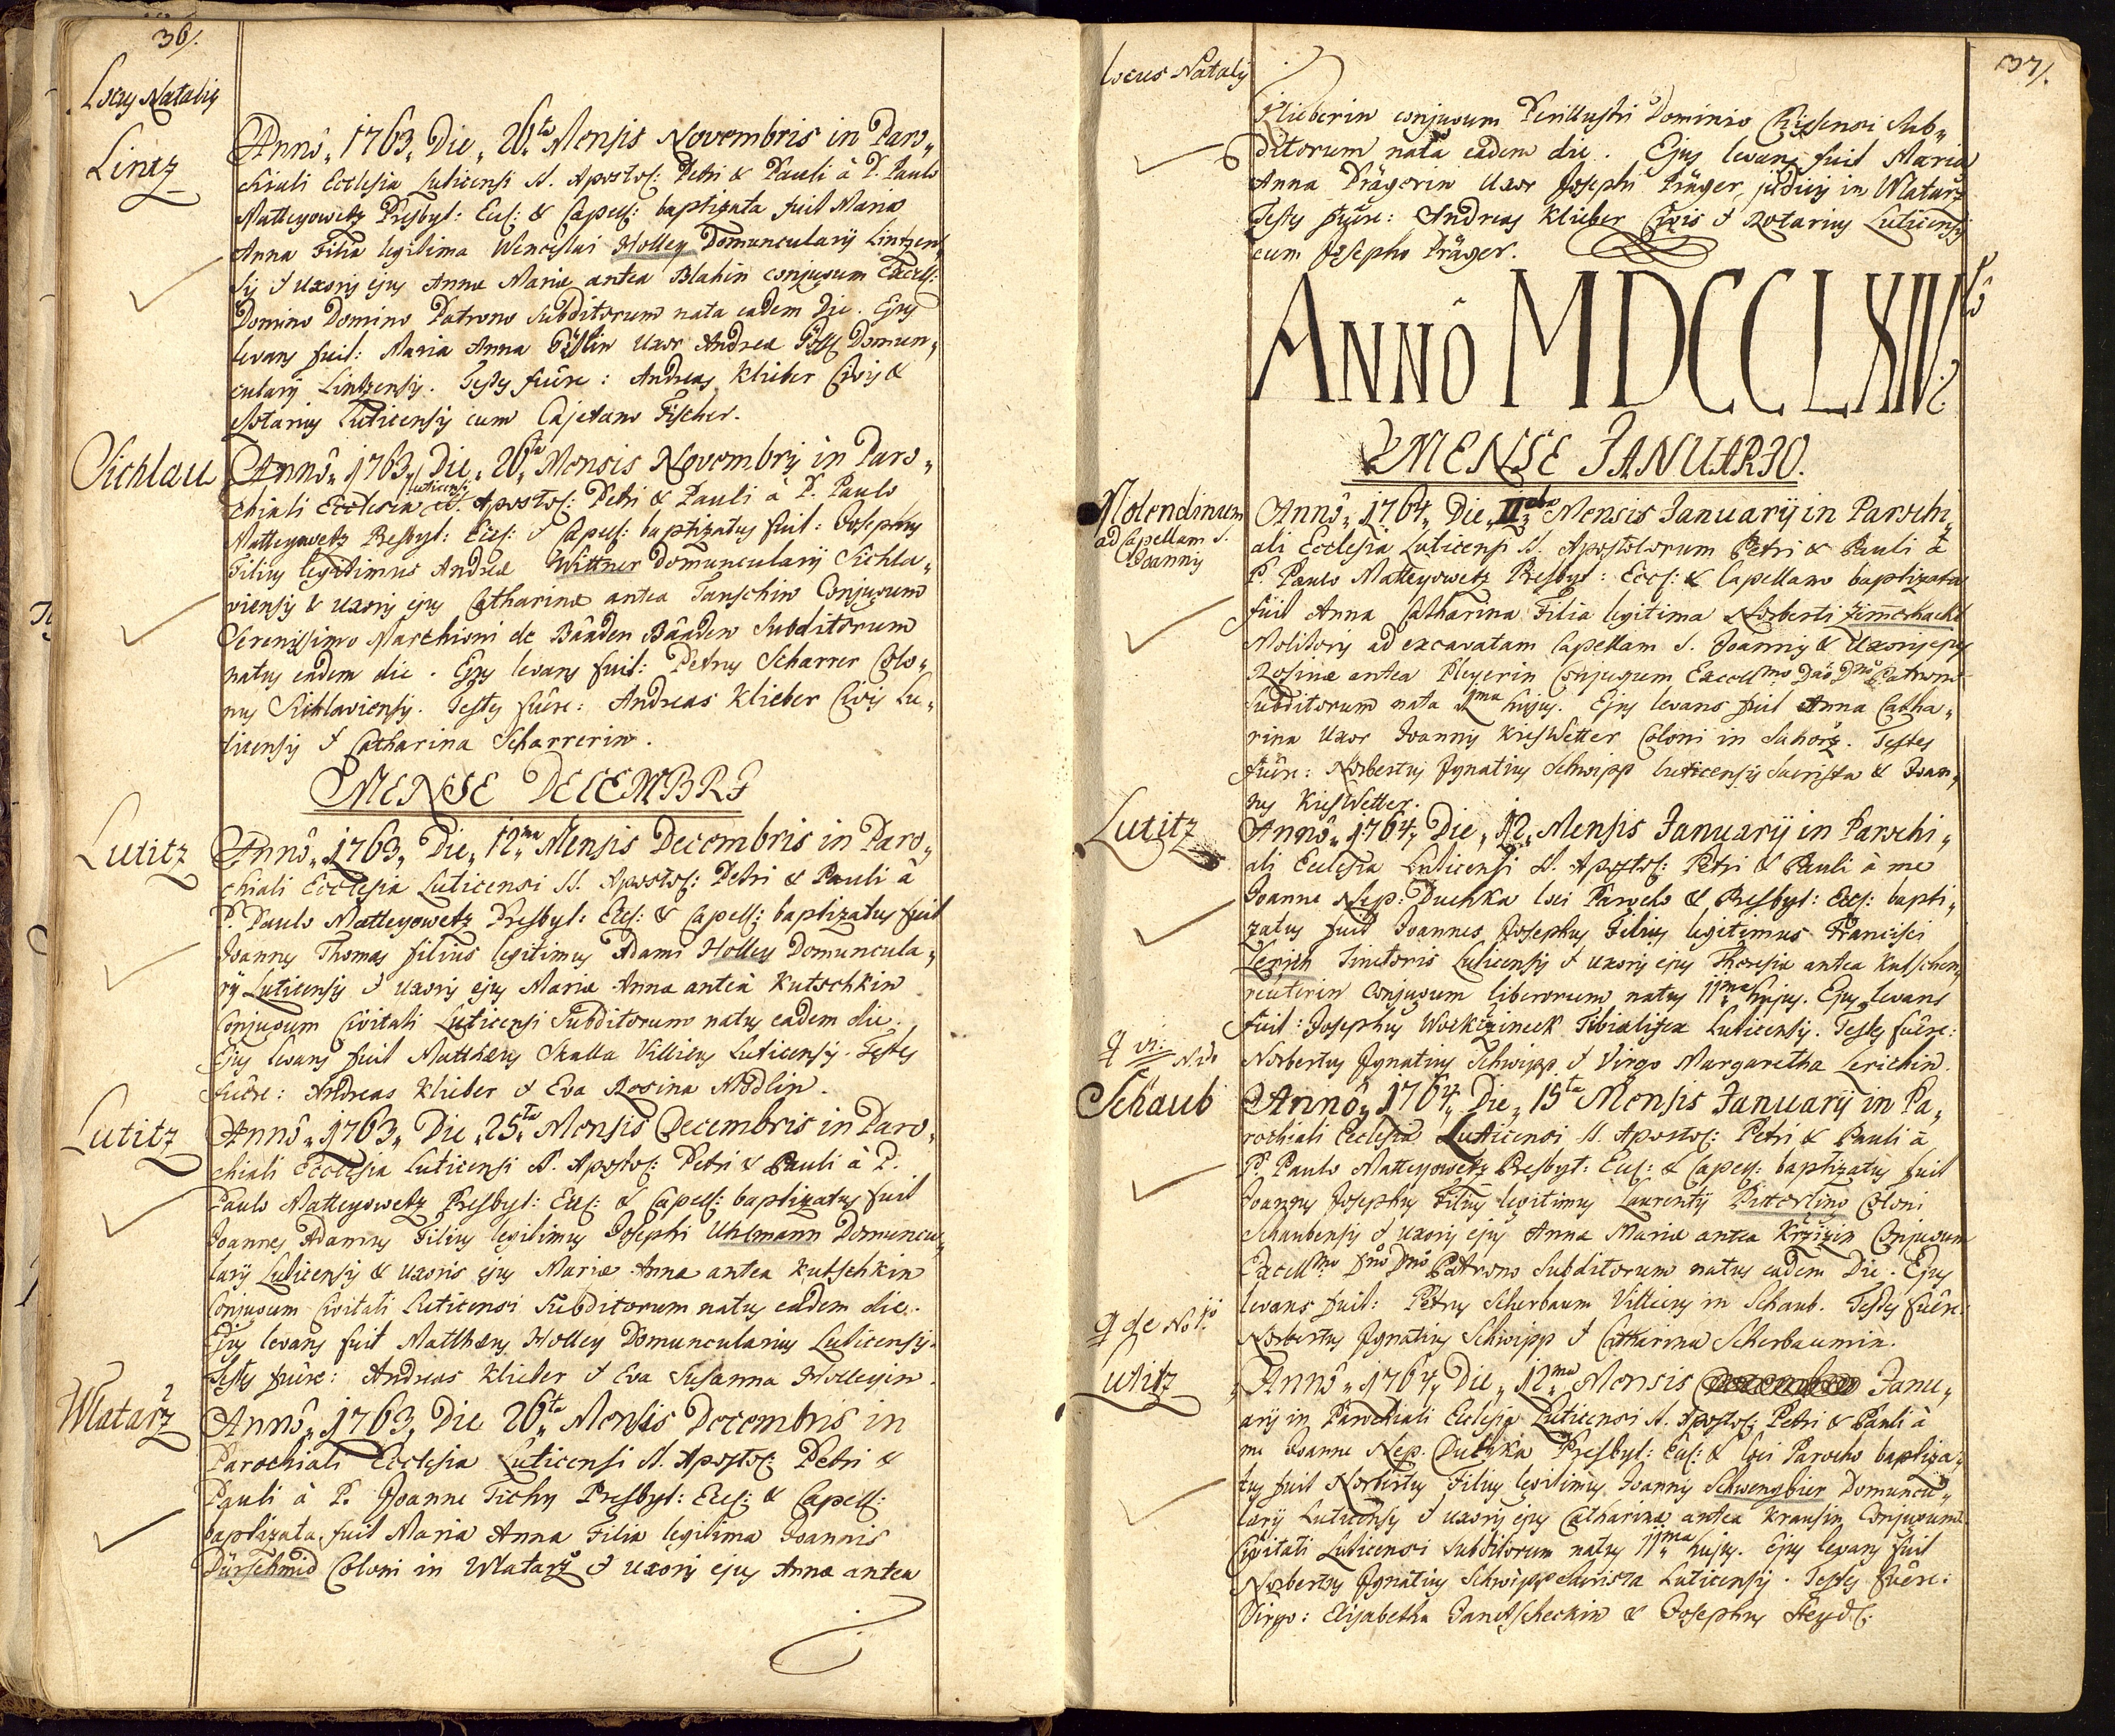 36/.
Locus Natalis
Lintz
Annô„ 1763„ Die„ 26ta Mensis Novembris in Paro„
chiali Ecclesia Luticensi SS. Apostol: Petri & Pauli à P. Paulo
Matteyowetz Presbyt: Eccl: & Capell: baptizata fuit Maria
Anna Filia legitima Wenceslai Holley Domuncularij Lintzen„
sis & Uxoris ejus Annæ Mariæ antea Blahin conjugum Excell:
Domino Domino Patrono Subditorum nata eadem Die. Ejus
levans fuit: Maria Anna Uxor Andreæ Domun„
cularij Lintzensis. Testes fuêre: Andreas Klieber Civis &
Notarius Luticensis cum Cajetano Fischer.
Sichlau
Annô„ 1763„ Die„ 26ta Mensis Novembris in Paro„
chiali Ecclesia Luticensi SS. Apostol: Petri & Pauli à P. Paulo
Matteyowetz Presbyt: Eccl: & Capell: baptizatus fuit: Josephus
Filius legitimus Andreæ Wittner Domuncularij Sichla„
viensis & uxoris ejus Catharinæ antea Janschin Conjugum
Serenissimo Marchioni de Bâaden Bâaden Subditorum
natus eadem die. Ejus levans fuit: Petrus Scharrer Colo„
nus Sichlaviensis. Testes fuêre: Andreas Klieber Civis Lu„
ticensis & Catharina Scharrerin.
MENSE DECEMBRI
Lutitz
Annô„ 1763„ Die„ 12ma Mensis Decembris in Paro„
chiali Ecclesia Luticensi SS. Apostol: Petri & Pauli à
P. Paulo Matteyowetz Presbyt: Eccl: & Capell: baptizatus fuit
Joannes Thomas filius legitimus Adami Holley Domuncula„
rij Luticensis & uxoris ejus Mariæ Annæ anteà Kutschkin
Conjugum Civitati Luticensi Subditorum natus eadem die.
Ejus levans fuit Matthæus Skalla Villicus Luticensis. Testes
fuêre: Andreas Klieber & Eva Rosina Mödlin.
Lutitz
Annô„ 1763„ Die„ 25ta Mensis Decembris in Paro„
chiali Ecclesia Luticensi SS. Apostol: Petri & Pauli à P.
Paulo Matteyowetz Presbyt: Eccl: & Capell: baptizatus fuit
Joannes Adamus Filius legitimus Josephi Uhlmann Domuncu„
larij Luticensis & uxoris ejus Mariæ Annæ antea Kutschkin
Conjugum Civitati Luticensi Subditorum natus eadem die.
Ejus levans fuit Matthæus Holley Domuncularius Luticensis.
Testes fuêre: Andreas Klieber & Eva Susanna Holleyin.
Wlatarz
Annô„ 1763„ Die 26ta Mensis Decembris in
Parochiali Ecclesia Luticensi SS. Apostol: Petri &
Pauli à P. Joanne Tichy Presbyt: Eccl: & Capell:
baptizata fuit Maria Anna Filia legitima Joannis
Dürschmid Coloni in Wlatarz & uxoris ejus Annæ antea
37/.
Locus Natalis
Klieberin conjugum Perillustri Dominio Chisensi Sub„
ditorum nata eadem die. Ejus levans fuit Maria
Anna Prägerin Uxor Josephi Präger judicis in Wlatarz
Testes fuêre: Andreas Klieber Civis & Notarius Luticensis
cum Josepho Präger.
ANNÔ MDCCLXIV.
MENSE JANUARIO.
Molendinum
ad Capellam S.
Joannis
Annô„ 1764„ Die„ IIda Mensis Januarij in Parochi„
ali Ecclesia Luticensi SS. Apostolorum Petri & Pauli à
P. Paulo Matteyowetz Presbyt: Eccl: & Capellano baptizata
fuit Anna Catharina Filia legitima Norberti Zimerhackl
Molitoris ad excavatam Capellam S. Joannis & Uxoris ejus
Rosinæ antea Pleyerin Conjugum Excellmo Dño Dño Patrono
Subditorum nata 1ma hujus. Ejus levans fuit Anna Catha„
rina Uxor Joannis Kieswetter Coloni in Sahorz. Testes
fuêre: Norbertus Ignatius Schwipp luticensis Sacrista & Joan„
nes Kieswetter.
Lutitz
Annô„ 1764„ Die„ 12„ Mensis Januarij in Parochi„
ali Ecclesia Luticensi SS. Apostol: Petri & Pauli à me
Joanne Nep: Duchka loci Parocho & Presbyt: Eccl: bapti„
zatus fuit Joannes Josephus Filius legitimus Francisci
Lerich Tinctoris Luticensis & uxoris ejus Theresiæ antea Kutschen„
reuterin Conjugum liberorum natus 11ma hujus. Ejus levans
fuit: Josephus Workzineck Tibialifex Luticensis. Testes fuêre:
Norbertus Ignatius Schwipp & Virgo Margaretha Lerichin.
Schaub
Annô„ 1764„ Die„ 15ta Mensis Januarij in Pa„
rochiali Ecclesia Luticensi SS. Apostol: Petri & Pauli à
P. Paulo Matteyowetz Presbyt: Eccl: & Capell: baptizatus fuit
Joannes Josephus Filius legitimus Laurentij Pitterling Coloni
Schaubensis & uxoris ejus Annæ Mariæ antea Krzizin Conjugum
Excellmo Dño Dño Patrono Subditorum natus eadem Die. Ejus
levans fuit: Petrus Scherbaum Villicus in Schaub. Testes fuêre:
Norbertus Ignatius Schwipp & Catharina Scherbaumin.
Lutitz
Annô„ 1764„ Die„ 12ma Mensis Janu„
arij in Parochiali Ecclesia Luticensi SS. Apostol: Petri & Pauli à
me Joanne Nep: Duchka Presbyt: Eccl: & loci Parocho baptiza„
tus fuit Norbertus Filius legitimus Joannis Schwengbier Domuncu„
larij Luticensis & uxoris ejus Catharinæ antea Krausin Conjugum
Civitati Luticensi Subditorum natus 11ma hujus. Ejus levans fuit
Norbertus Ignatius Schwipp Sacrista Luticensis. Testes fuêre:
Virgo: Elisabetha Janetscheckin & Josephus Heydl.